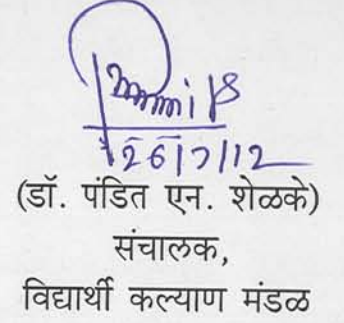 26/7/12
(डॉ. पंडित एन. शेळके)
संचालक,
विद्यार्थी कल्याण मंडळ